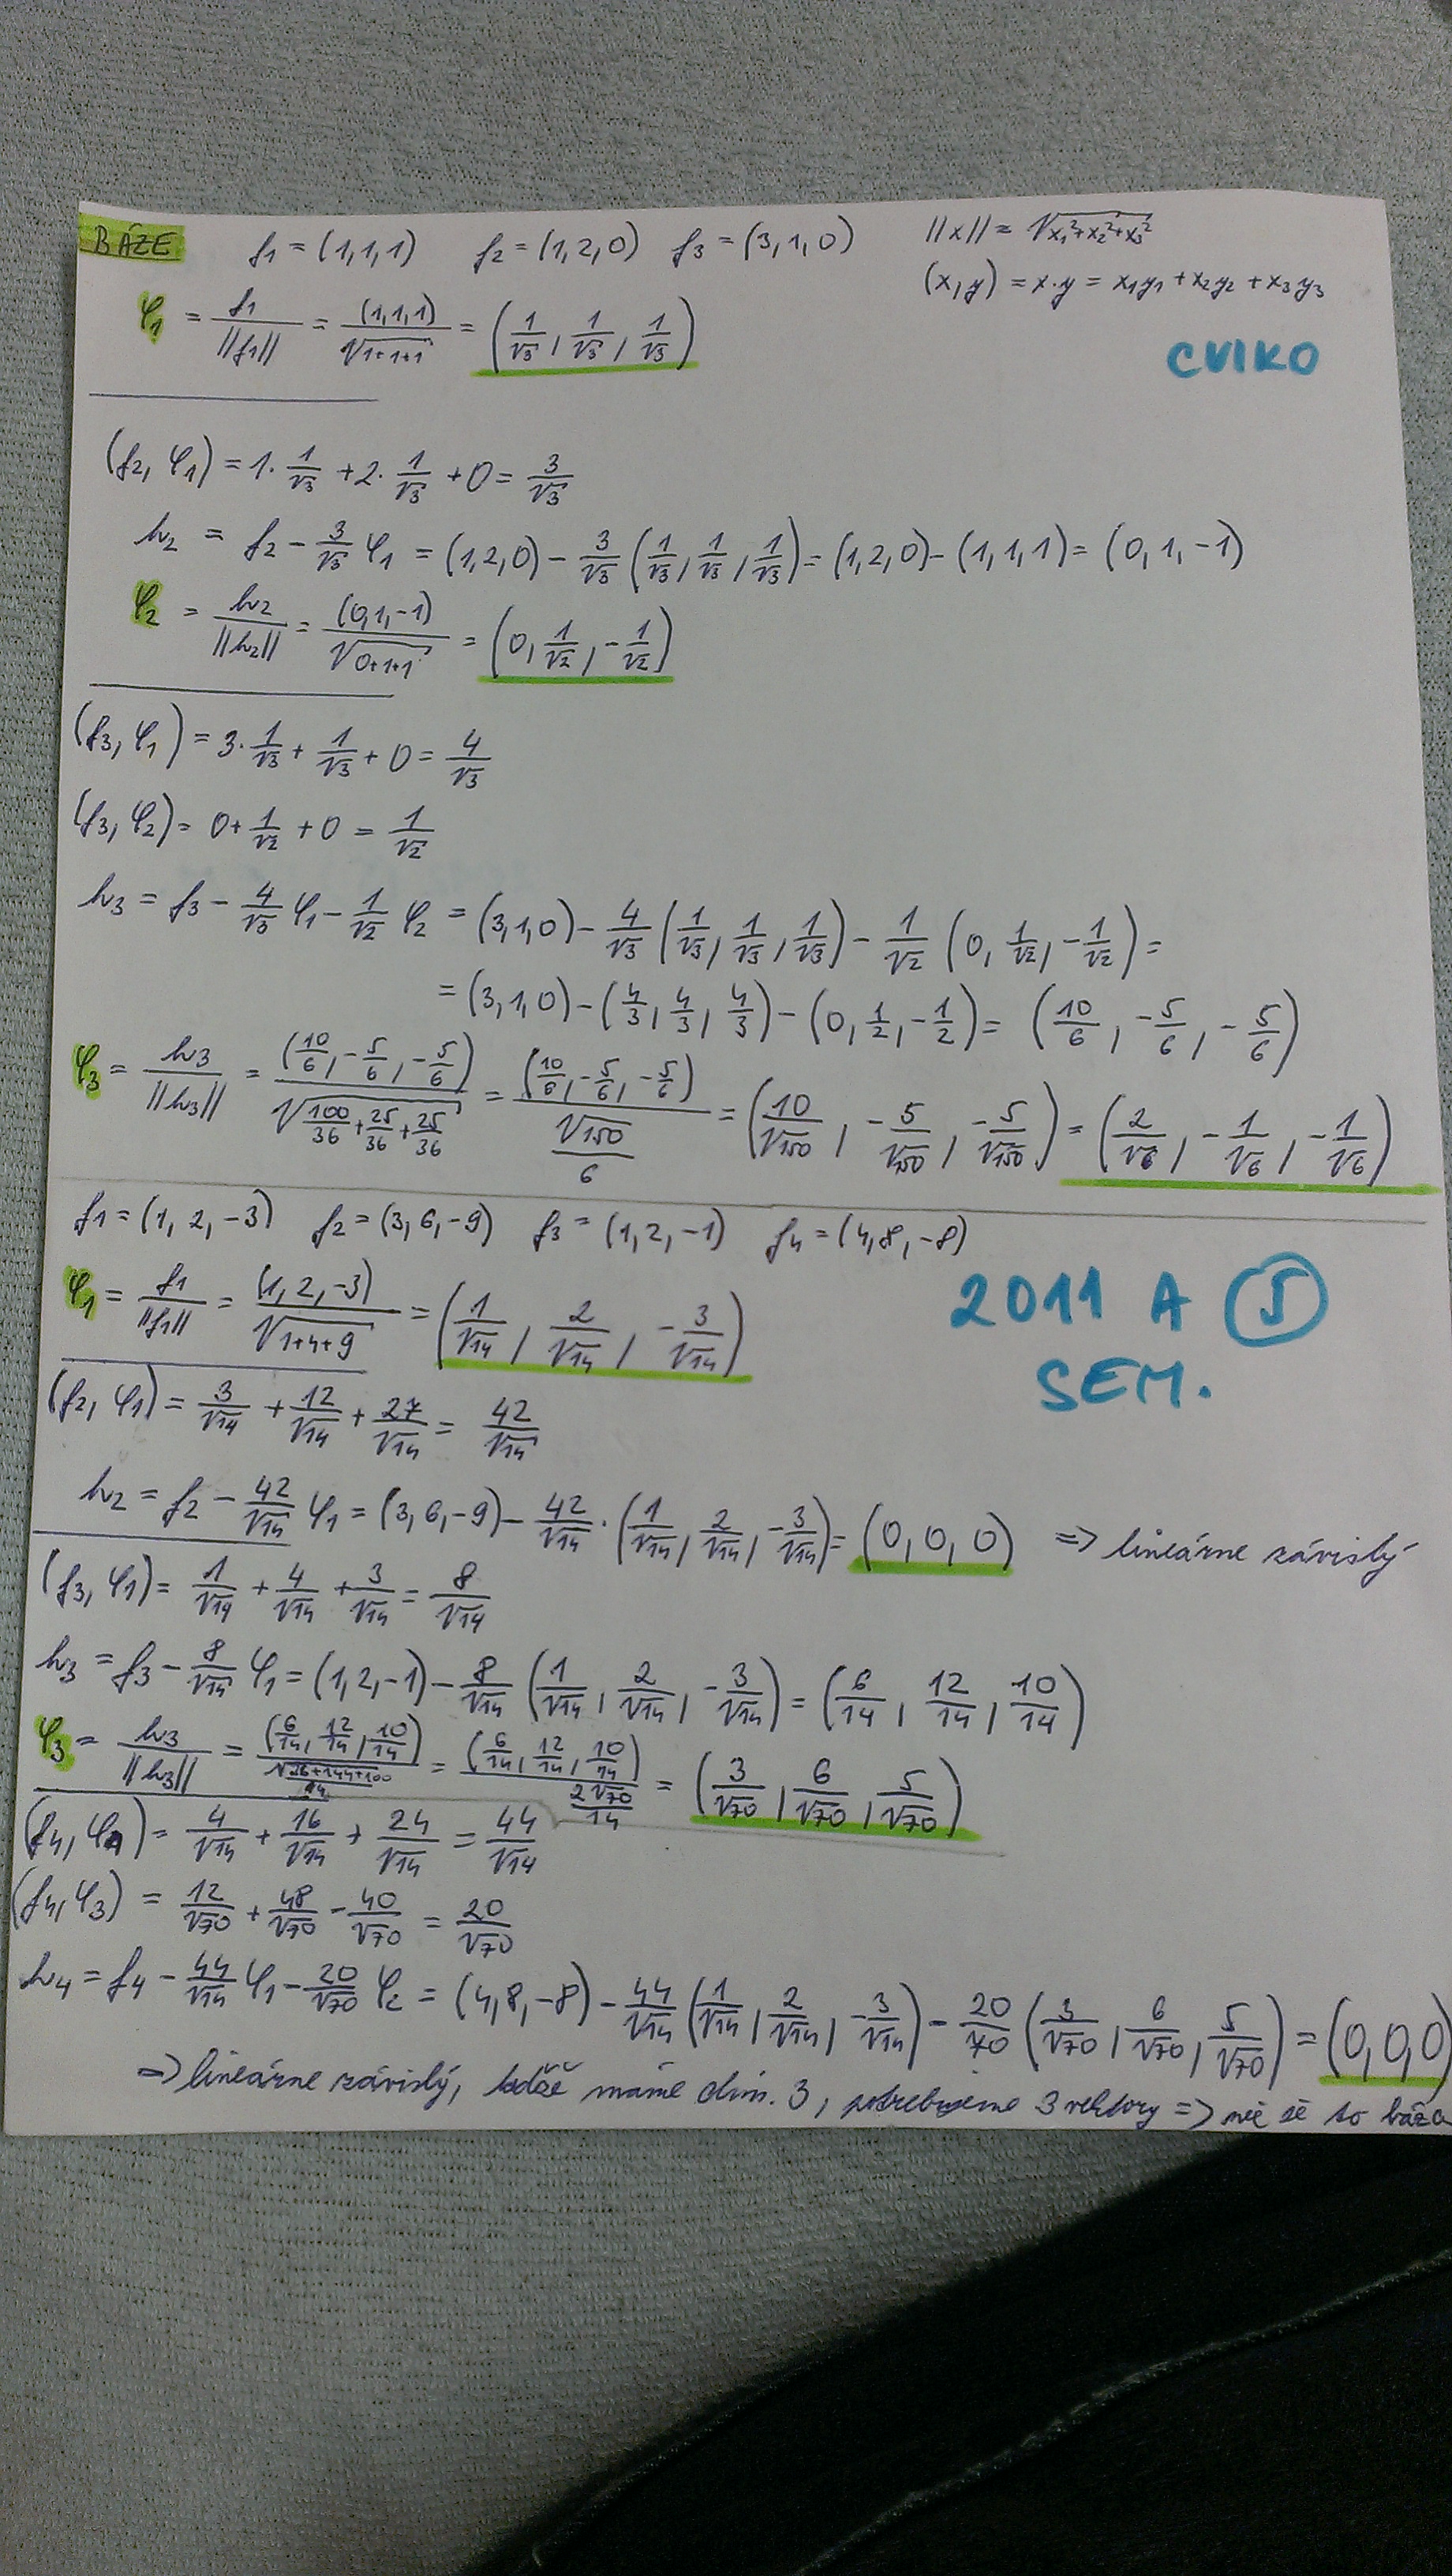 BÁZE f1 = (1,1,1) f2 = (1,2,0) f3 = (3,1,0) ||x|| = √(x1²+x2²+x3²)
(x,y) = x·y = x1y1 + x2y2 + x3y3
φ1 = f1/||f1|| = (1,1,1)/√(1+1+1) = (1/√3, 1/√3, 1/√3)
CVIKO
(f2, φ1) = 1·1/√3 + 2·1/√3 + 0 = 3/√3
h2 = f2 − 3/√3 φ1 = (1,2,0) − 3/√3 (1/√3, 1/√3, 1/√3) = (1,2,0) − (1,1,1) = (0,1,−1)
φ2 = h2/||h2|| = (0,1,−1)/√(0+1+1) = (0, 1/√2, −1/√2)
(f3, φ1) = 3·1/√3 + 1/√3 + 0 = 4/√3
(f3, φ2) = 0 + 1/√2 + 0 = 1/√2
h3 = f3 − 4/√3 φ1 − 1/√2 φ2 = (3,1,0) − 4/√3 (1/√3, 1/√3, 1/√3) − 1/√2 (0, 1/√2, −1/√2) =
= (3,1,0) − (4/3, 4/3, 4/3) − (0, 1/2, −1/2) = (10/6, −5/6, −5/6)
φ3 = h3/||h3|| = (10/6, −5/6, −5/6)/√(100/36 + 25/36 + 25/36) = (10/6, −5/6, −5/6)/(√150/6) = (10/√150, −5/√150, −5/√150) = (2/√6, −1/√6, −1/√6)
f1 = (1, 2, −3) f2 = (3, 6, −9) f3 = (1, 2, −1) f4 = (4, 8, −8)
φ1 = f1/||f1|| = (1, 2, −3)/√(1+4+9) = (1/√14, 2/√14, −3/√14)
2011 A 5
SEM.
(f2, φ1) = 3/√14 + 12/√14 + 27/√14 = 42/√14
h2 = f2 − 42/√14 φ1 = (3, 6, −9) − 42/√14 · (1/√14, 2/√14, −3/√14) = (0, 0, 0) => lineárne závislý
(f3, φ1) = 1/√14 + 4/√14 + 3/√14 = 8/√14
h3 = f3 − 8/√14 φ1 = (1, 2, −1) − 8/√14 (1/√14, 2/√14, −3/√14) = (6/14, 12/14, 10/14)
φ3 = h3/||h3|| = (6/14, 12/14, 10/14)/(√(36+144+100)/14) = (6/14, 12/14, 10/14)/(2√70/14) = (3/√70, 6/√70, 5/√70)
(f4, φ1) = 4/√14 + 16/√14 + 24/√14 = 44/√14
(f4, φ3) = 12/√70 + 48/√70 − 40/√70 = 20/√70
h4 = f4 − 44/√14 φ1 − 20/√70 φ2 = (4,8,−8) − 44/√14 (1/√14, 2/√14, −3/√14) − 20/70 (3/√70, 6/√70, 5/√70) = (0,0,0)
=> lineárne závislý, máme dim. 3, potrebujeme 3 vektory => to báza